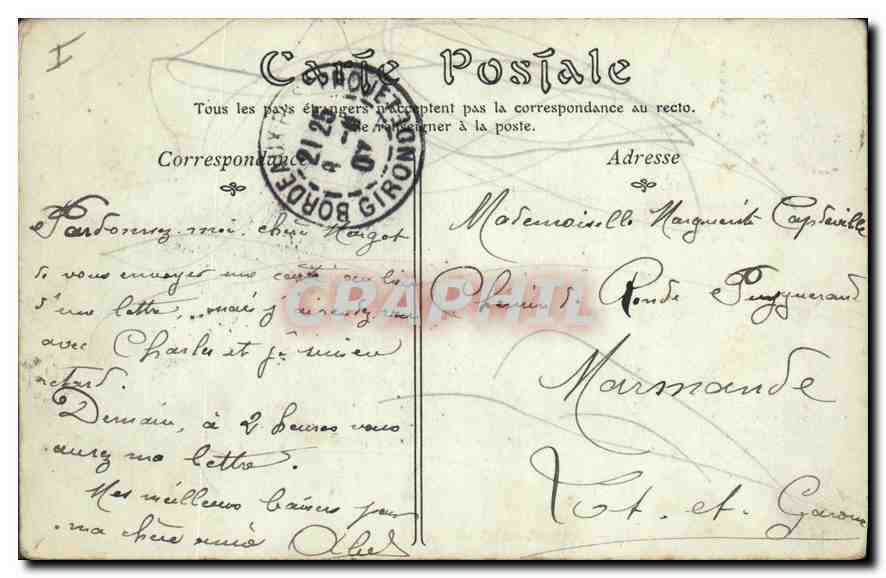 I
Carte Postale
Tous les pays étrangers n'acceptent pas la correspondance au recto.
Se renseigner à la poste.
Correspondance
Adresse
BORDEAUX GIRONDE
21 25
04
Pardonnez-moi, chère Margot
de vous envoyer une carte au lieu
d'une lettre, mais j'ai rendez-vous
avec Charles et je suis en
retard.
Demain, à 2 heures vous
aurez ma lettre.
Mes meilleurs baisers pour
ma chère amie Abel
Mademoiselle Marguerite Capdeville
Chemin de Ronde Puygueraud
Marmande
Lot-et-Garonne
CPAPHIL